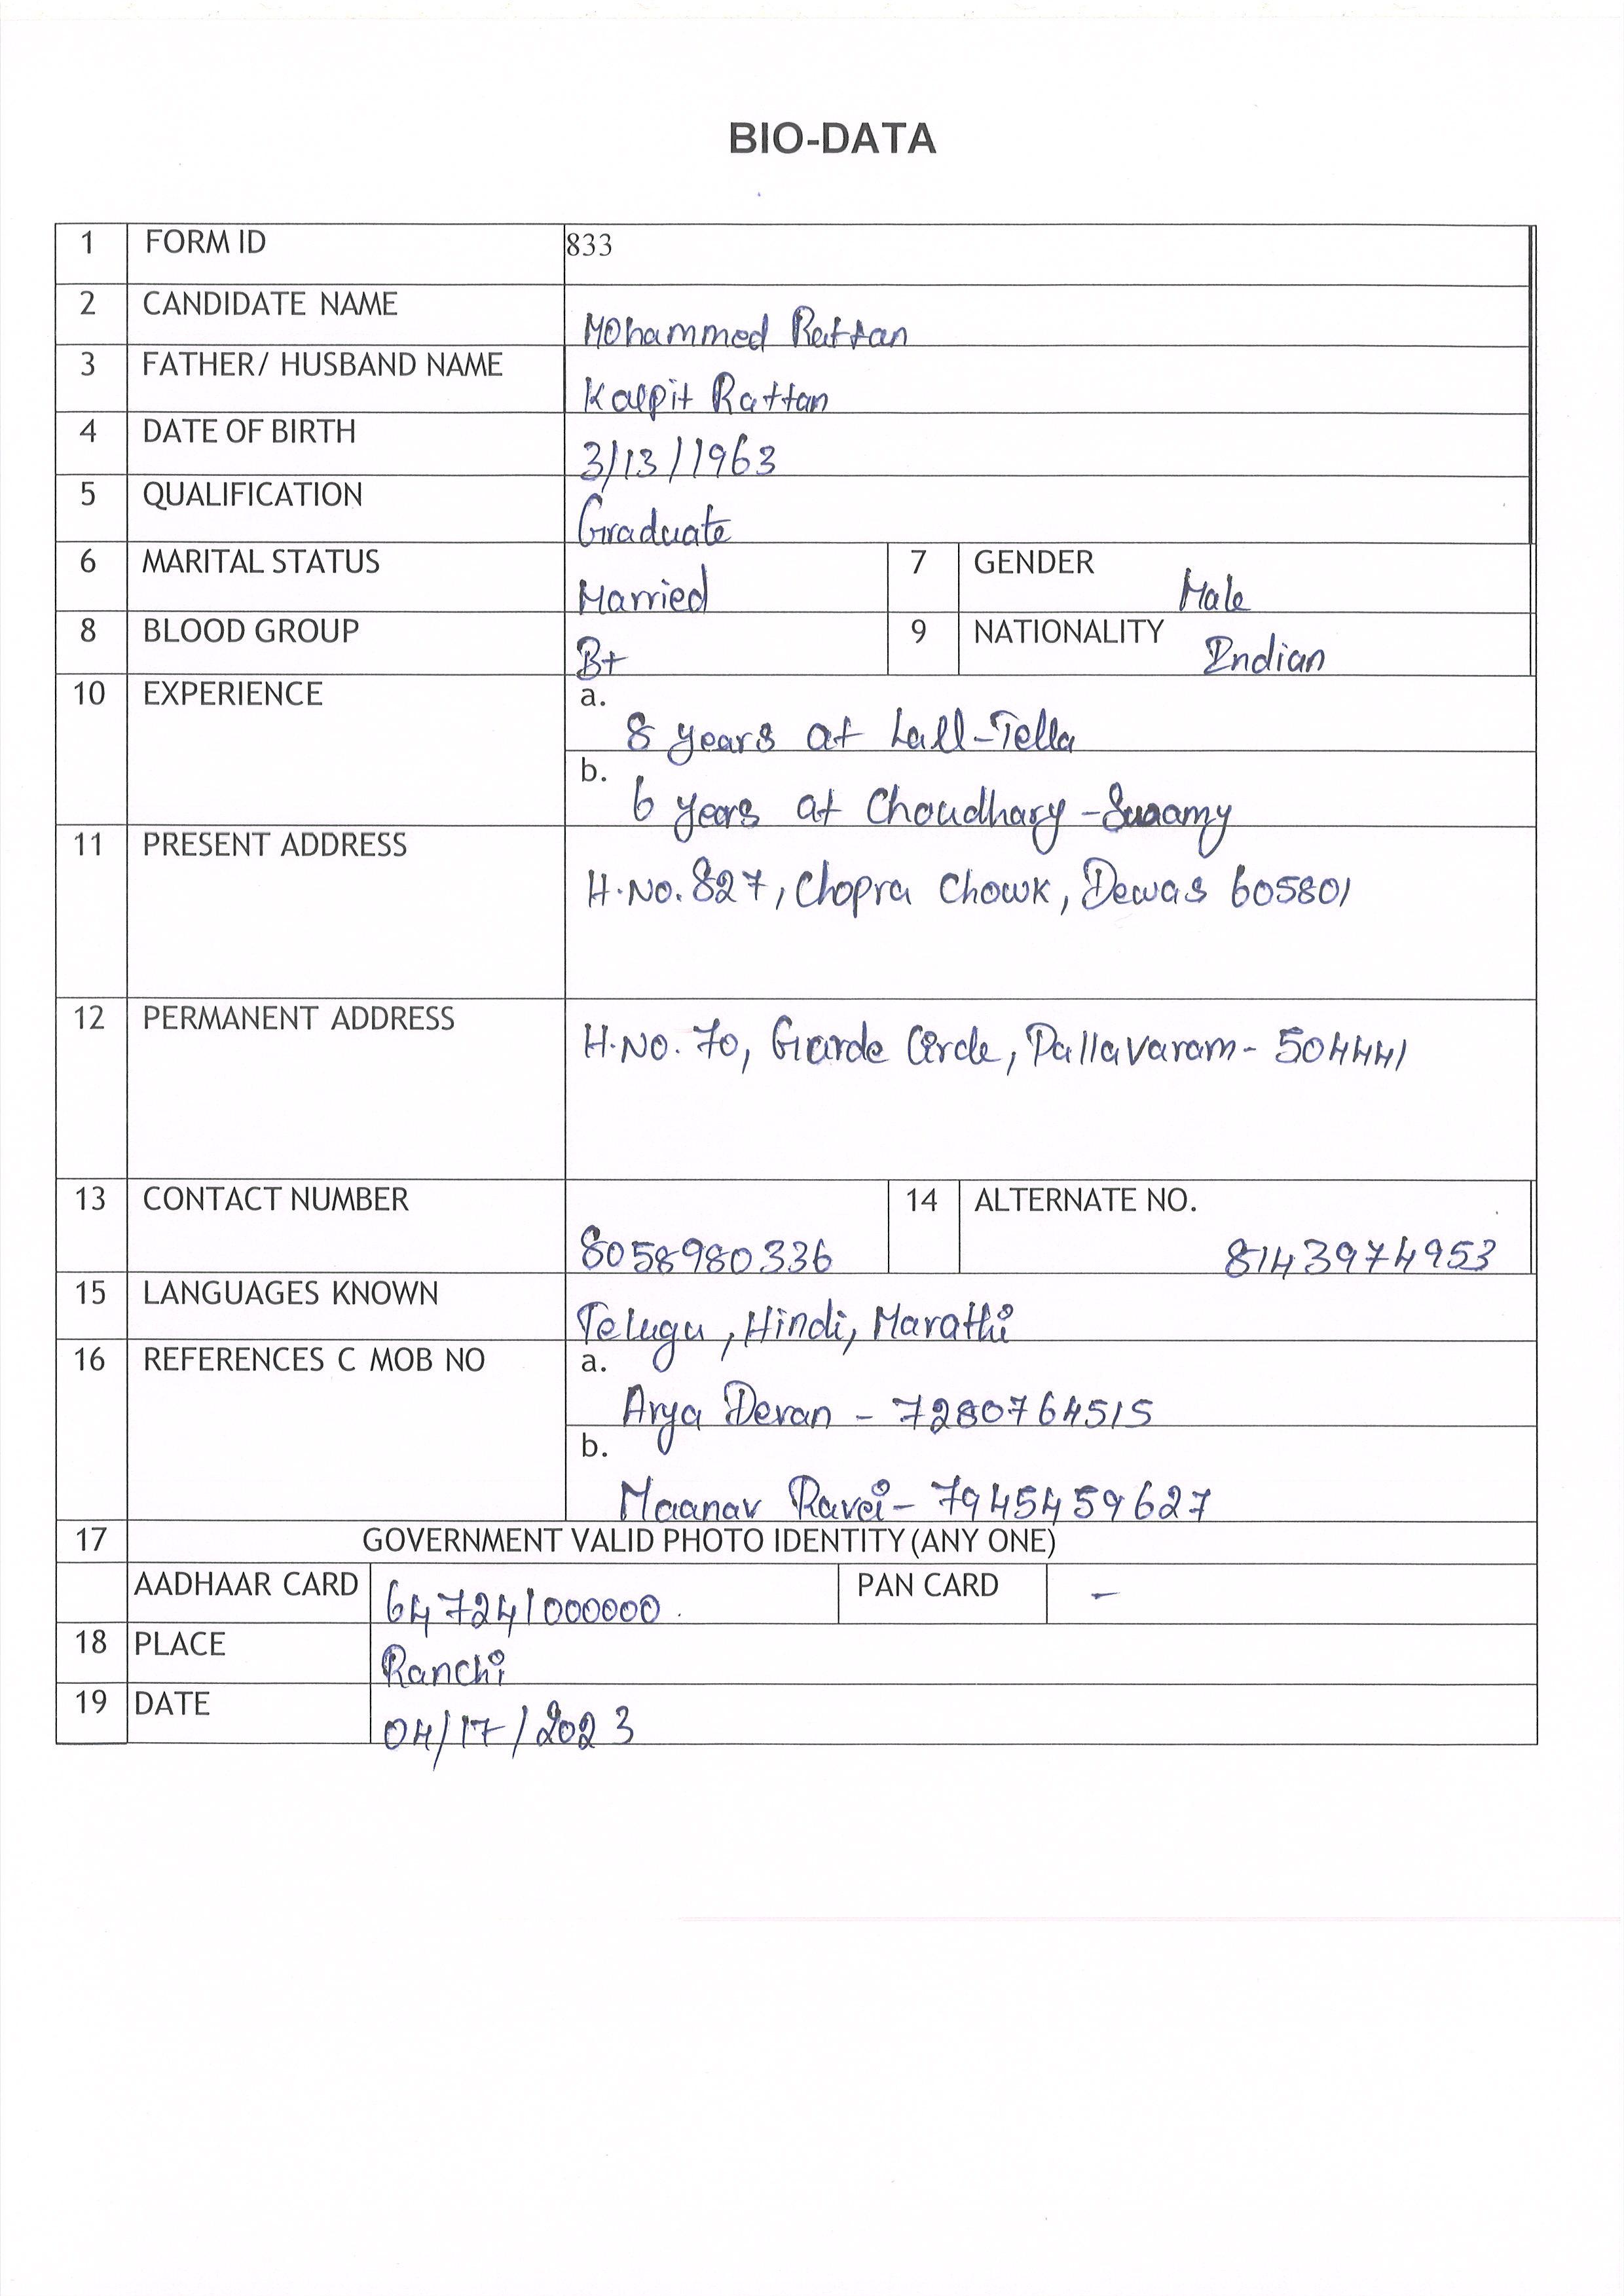 BIO-DATA
1 FORM ID 833
2 CANDIDATE NAME Mohammed Rattan
3 FATHER/ HUSBAND NAME Kalpit Rattan
4 DATE OF BIRTH 3/13/1963
5 QUALIFICATION Graduate
6 MARITAL STATUS Married 7 GENDER Male
8 BLOOD GROUP B+ 9 NATIONALITY Indian
10 EXPERIENCE a. 8 years at Lall-Tella
b. 6 years at Choudhary-Swamy
11 PRESENT ADDRESS H.No. 827, Chopra Chowk, Dewas 605801
12 PERMANENT ADDRESS H.No. 70, Garde Circle, Pallavaram - 504441
13 CONTACT NUMBER 8058980336 14 ALTERNATE NO. 8143974953
15 LANGUAGES KNOWN Telugu, Hindi, Marathi
16 REFERENCES C MOB NO a. Arya Devan - 7280764515
b. Maanav Ravei - 7945459627
17 GOVERNMENT VALID PHOTO IDENTITY (ANY ONE)
AADHAAR CARD 647241000000. PAN CARD -
18 PLACE Ranchi
19 DATE 04/17/2023